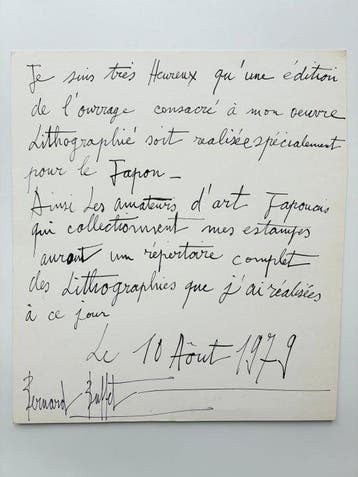 Je suis très Heureux qu'une édition
de l'ouvrage consacré à mon oeuvre
Lithographié soit realisée spécialement
pour le Japon _
Ainsi Les amateurs d'art Japonais
qui collectionnent mes estampes
auront un répertoire complet
des Lithographies que j'ai réalisées
à ce jour
Le 10 Aôut 1979
Bernard Buffet